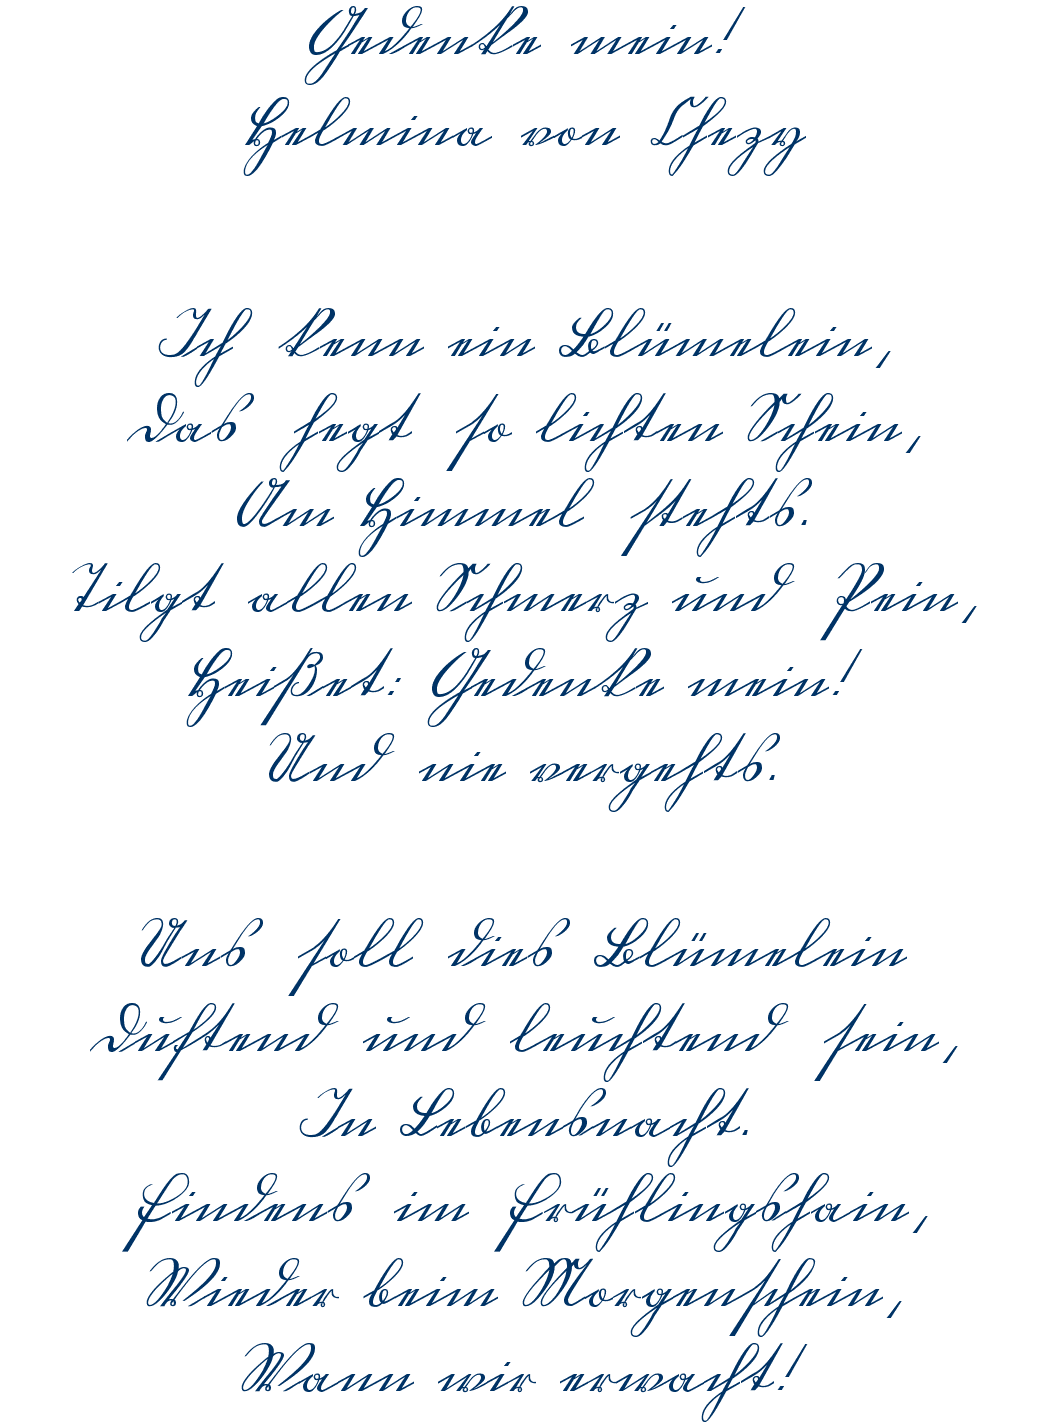 Gedenke mein!
Helmina von Chezy
Ich kenn ein Blümelein,
Das hegt so lichten Schein,
Am Himmel stehts.
Tilgt allen Schmerz und Pein,
Heißet: Gedenke mein!
Und nie vergehts.
Uns soll dies Blümelein
Duftend und leuchtend sein,
In Lebensnacht.
Findens im Frühlingshain,
Wieder beim Morgenschein,
Wann wir erwacht!